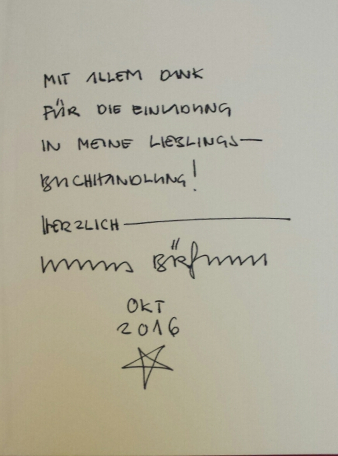 MIT ALLEM DANK
FÜR DIE EINLADUNG
IN MEINE LIEBLINGS-
BUCHHANDLUNG!
HERZLICH
OKT
2016